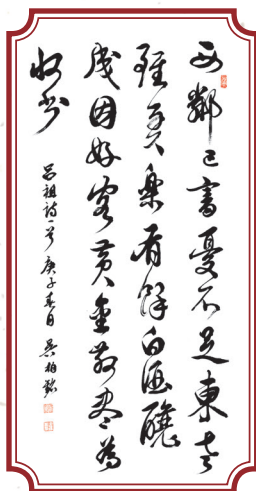 西鄰已富憂不足東老
雖貧樂有餘白酒釀
來因好客黄金散盡為
收書
吕祖詩一首庚子春日吴柏